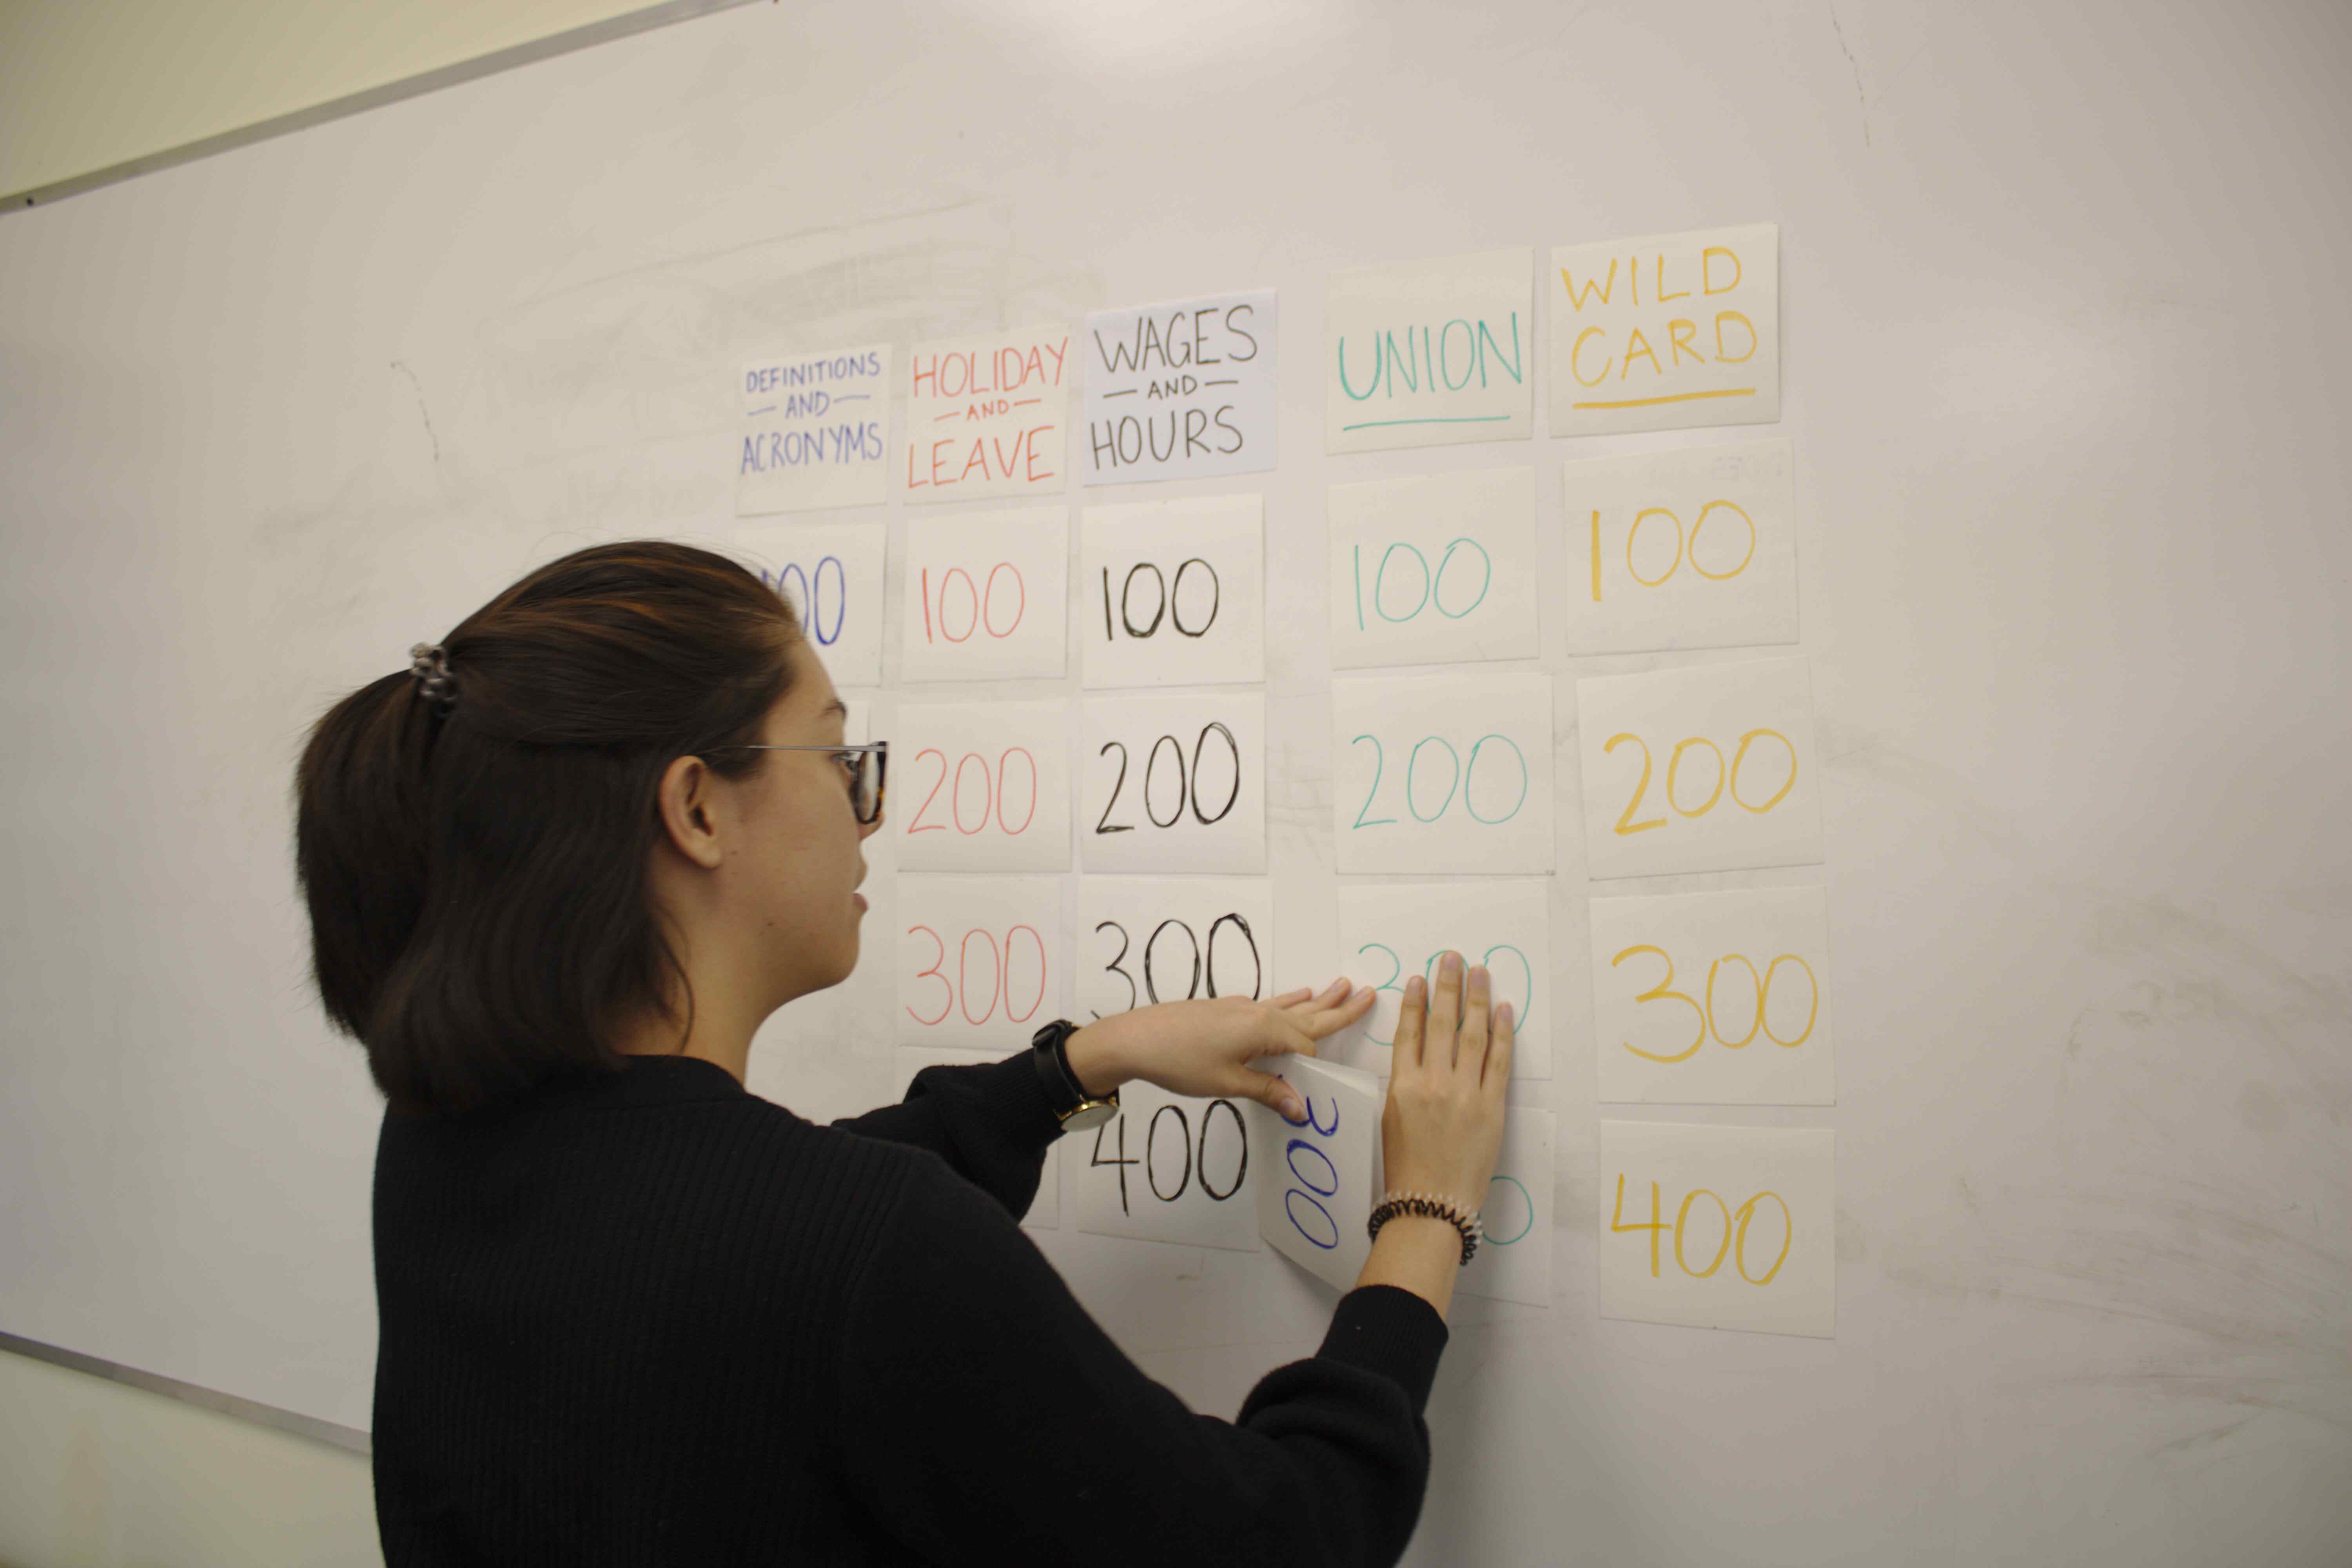 DEFINITIONS
AND
ACRONYMS
HOLIDAY
AND
LEAVE
WAGES
AND
HOURS
UNION
WILD
CARD
100
100
100
100
200
200
200
200
300
300
300
300
400
400
300